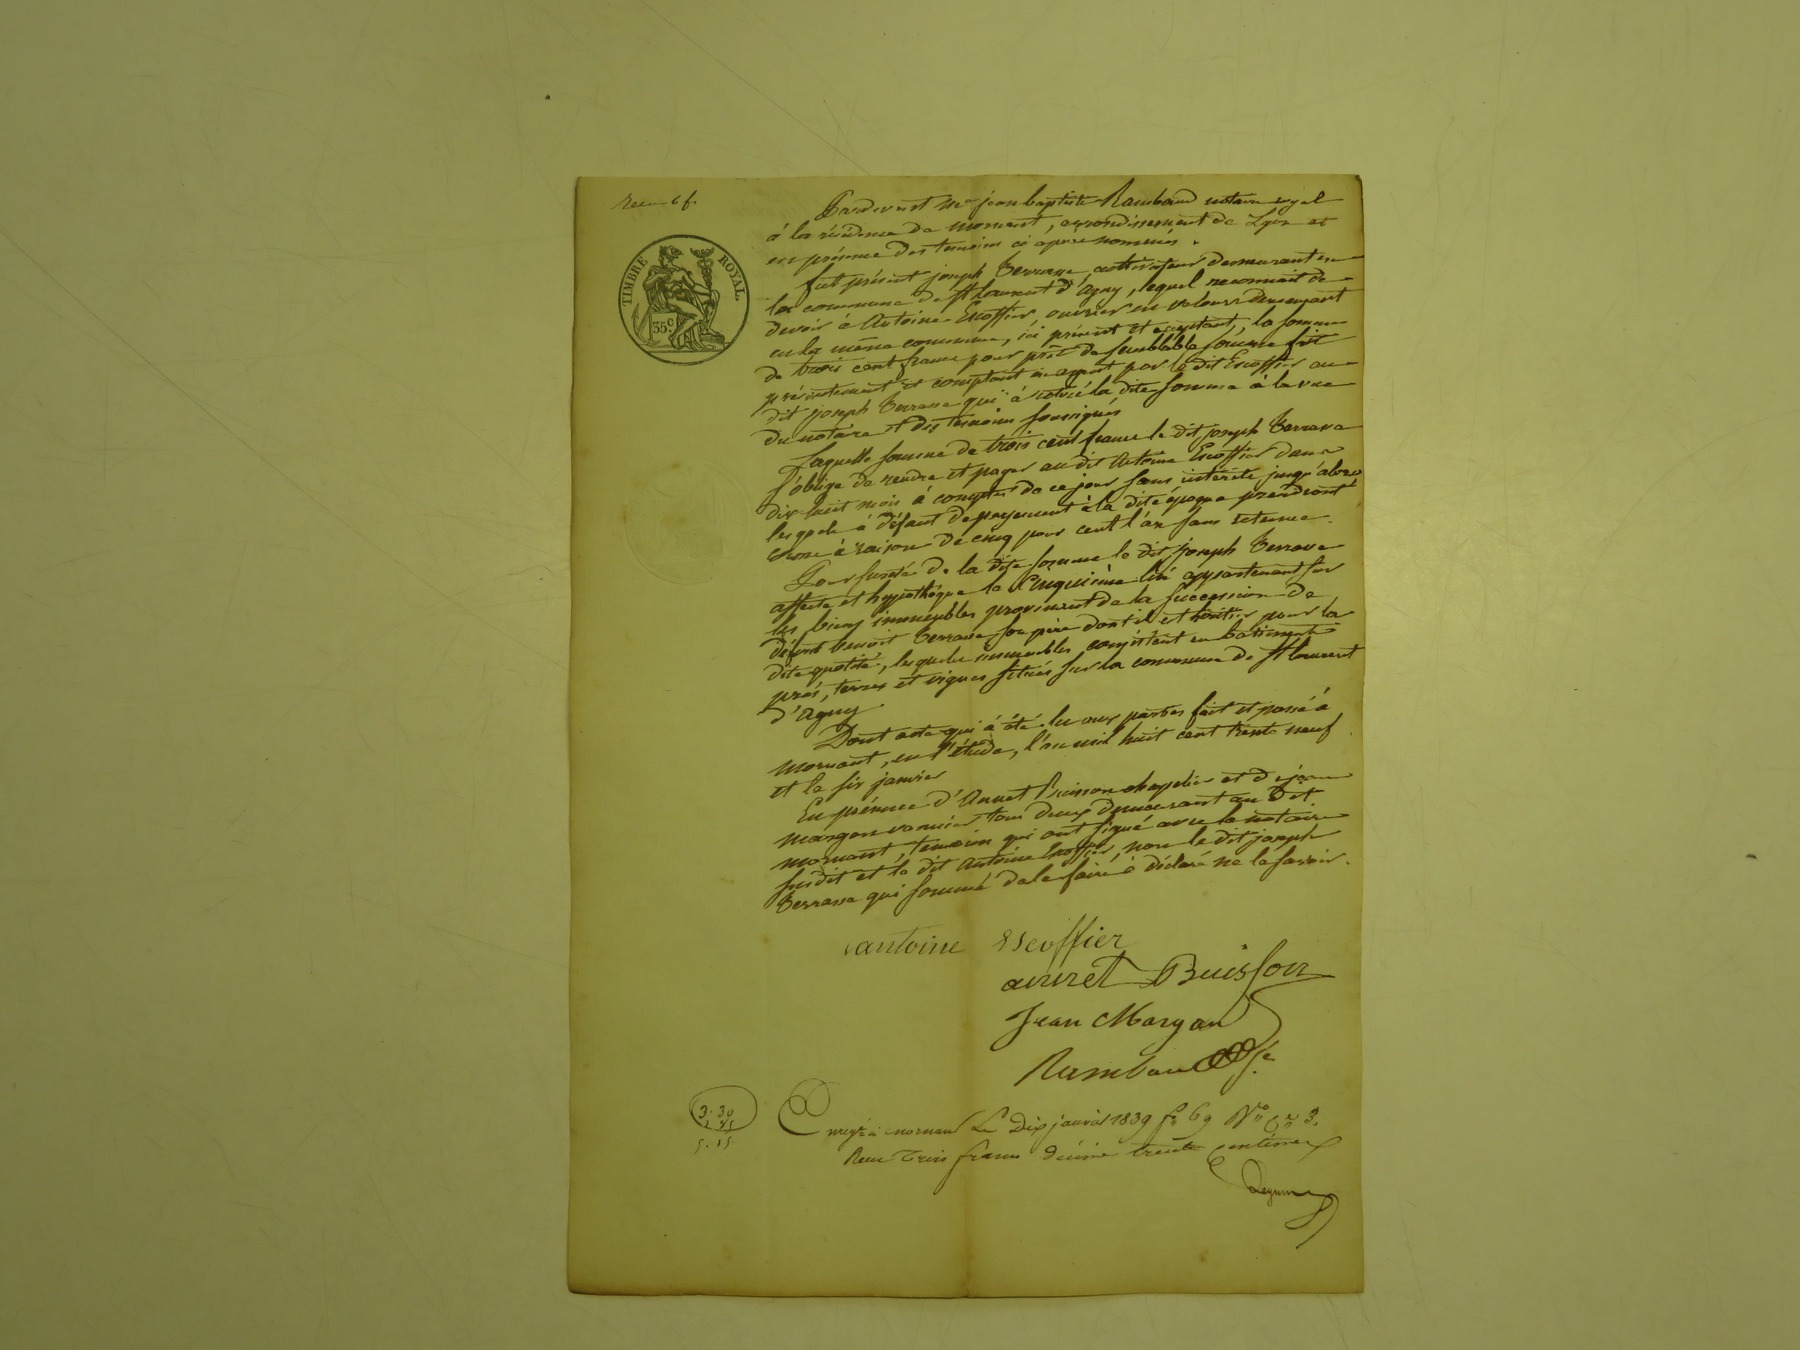 Recu 6 f.
TIMBRE ROYAL.
35 c.
Pardevant Me jean baptiste Rambaud notaire royal
à la résidence de mornant, arrondissement de Lyon et
en présence des temoins ci après nommés.
fut présent joseph Terrasse cultivateur demeurant en
la commune de st Laurent d'agny, lequel reconnait de
devoir à Antoine Escoffier, ouvrier en velours demeurant
en la même commune, ici présent et acceptant, la somme
de trois cent francs pour prêt de semblable somme fait
présentement et comptant en argent par le dit Escoffier au
dit joseph Terrasse qui à retiré la dite somme à la vue
du notaire et des temoins soussignés
Laquelle somme de trois cent francs le dit joseph Terrasse
s'oblige de rendre et payer au dit Antoine Escoffier dans
dix huit mois à compter de ce jour sans intérêts jusqu'alors
lesquels à défaut de payement à la dite époque prendront
cours à raison de cinq pour cent l'an sans retenue.
Pour sureté de la dite somme le dit joseph Terrasse
affecte et hypothèque le Cinquième lui appartenant sur
les biens immeubles provenant de la succession de
défunt benoit Terrasse son père dont il est héritier pour la
dite quotité, lesquels immeubles consistent en batiments
prés, terres et vignes situés sur la commune de st Laurent
d'agny
Dont acte qui à été lu aux parties fait et passé à
mornant, en l'étude, l'an mil huit cent trente neuf
et le six janvier
En présence d'Annet Buisson chapelier et de jean
margan vannier tous deux demeurant au dit
mornant, temoins qui ont signé avec le notaire
susdit et le dit Antoine Escoffier, non le dit joseph
Terrasse qui sommé de le faire à déclaré ne le savoir.
antoine Escoffier
annet Buisson
Jean Margan
Rambaud
3.30
5.15
Enregté à mornant Le Dix janvier 1839 fo 69 No Ces 3.
Recu Trois francs décime trente centimes